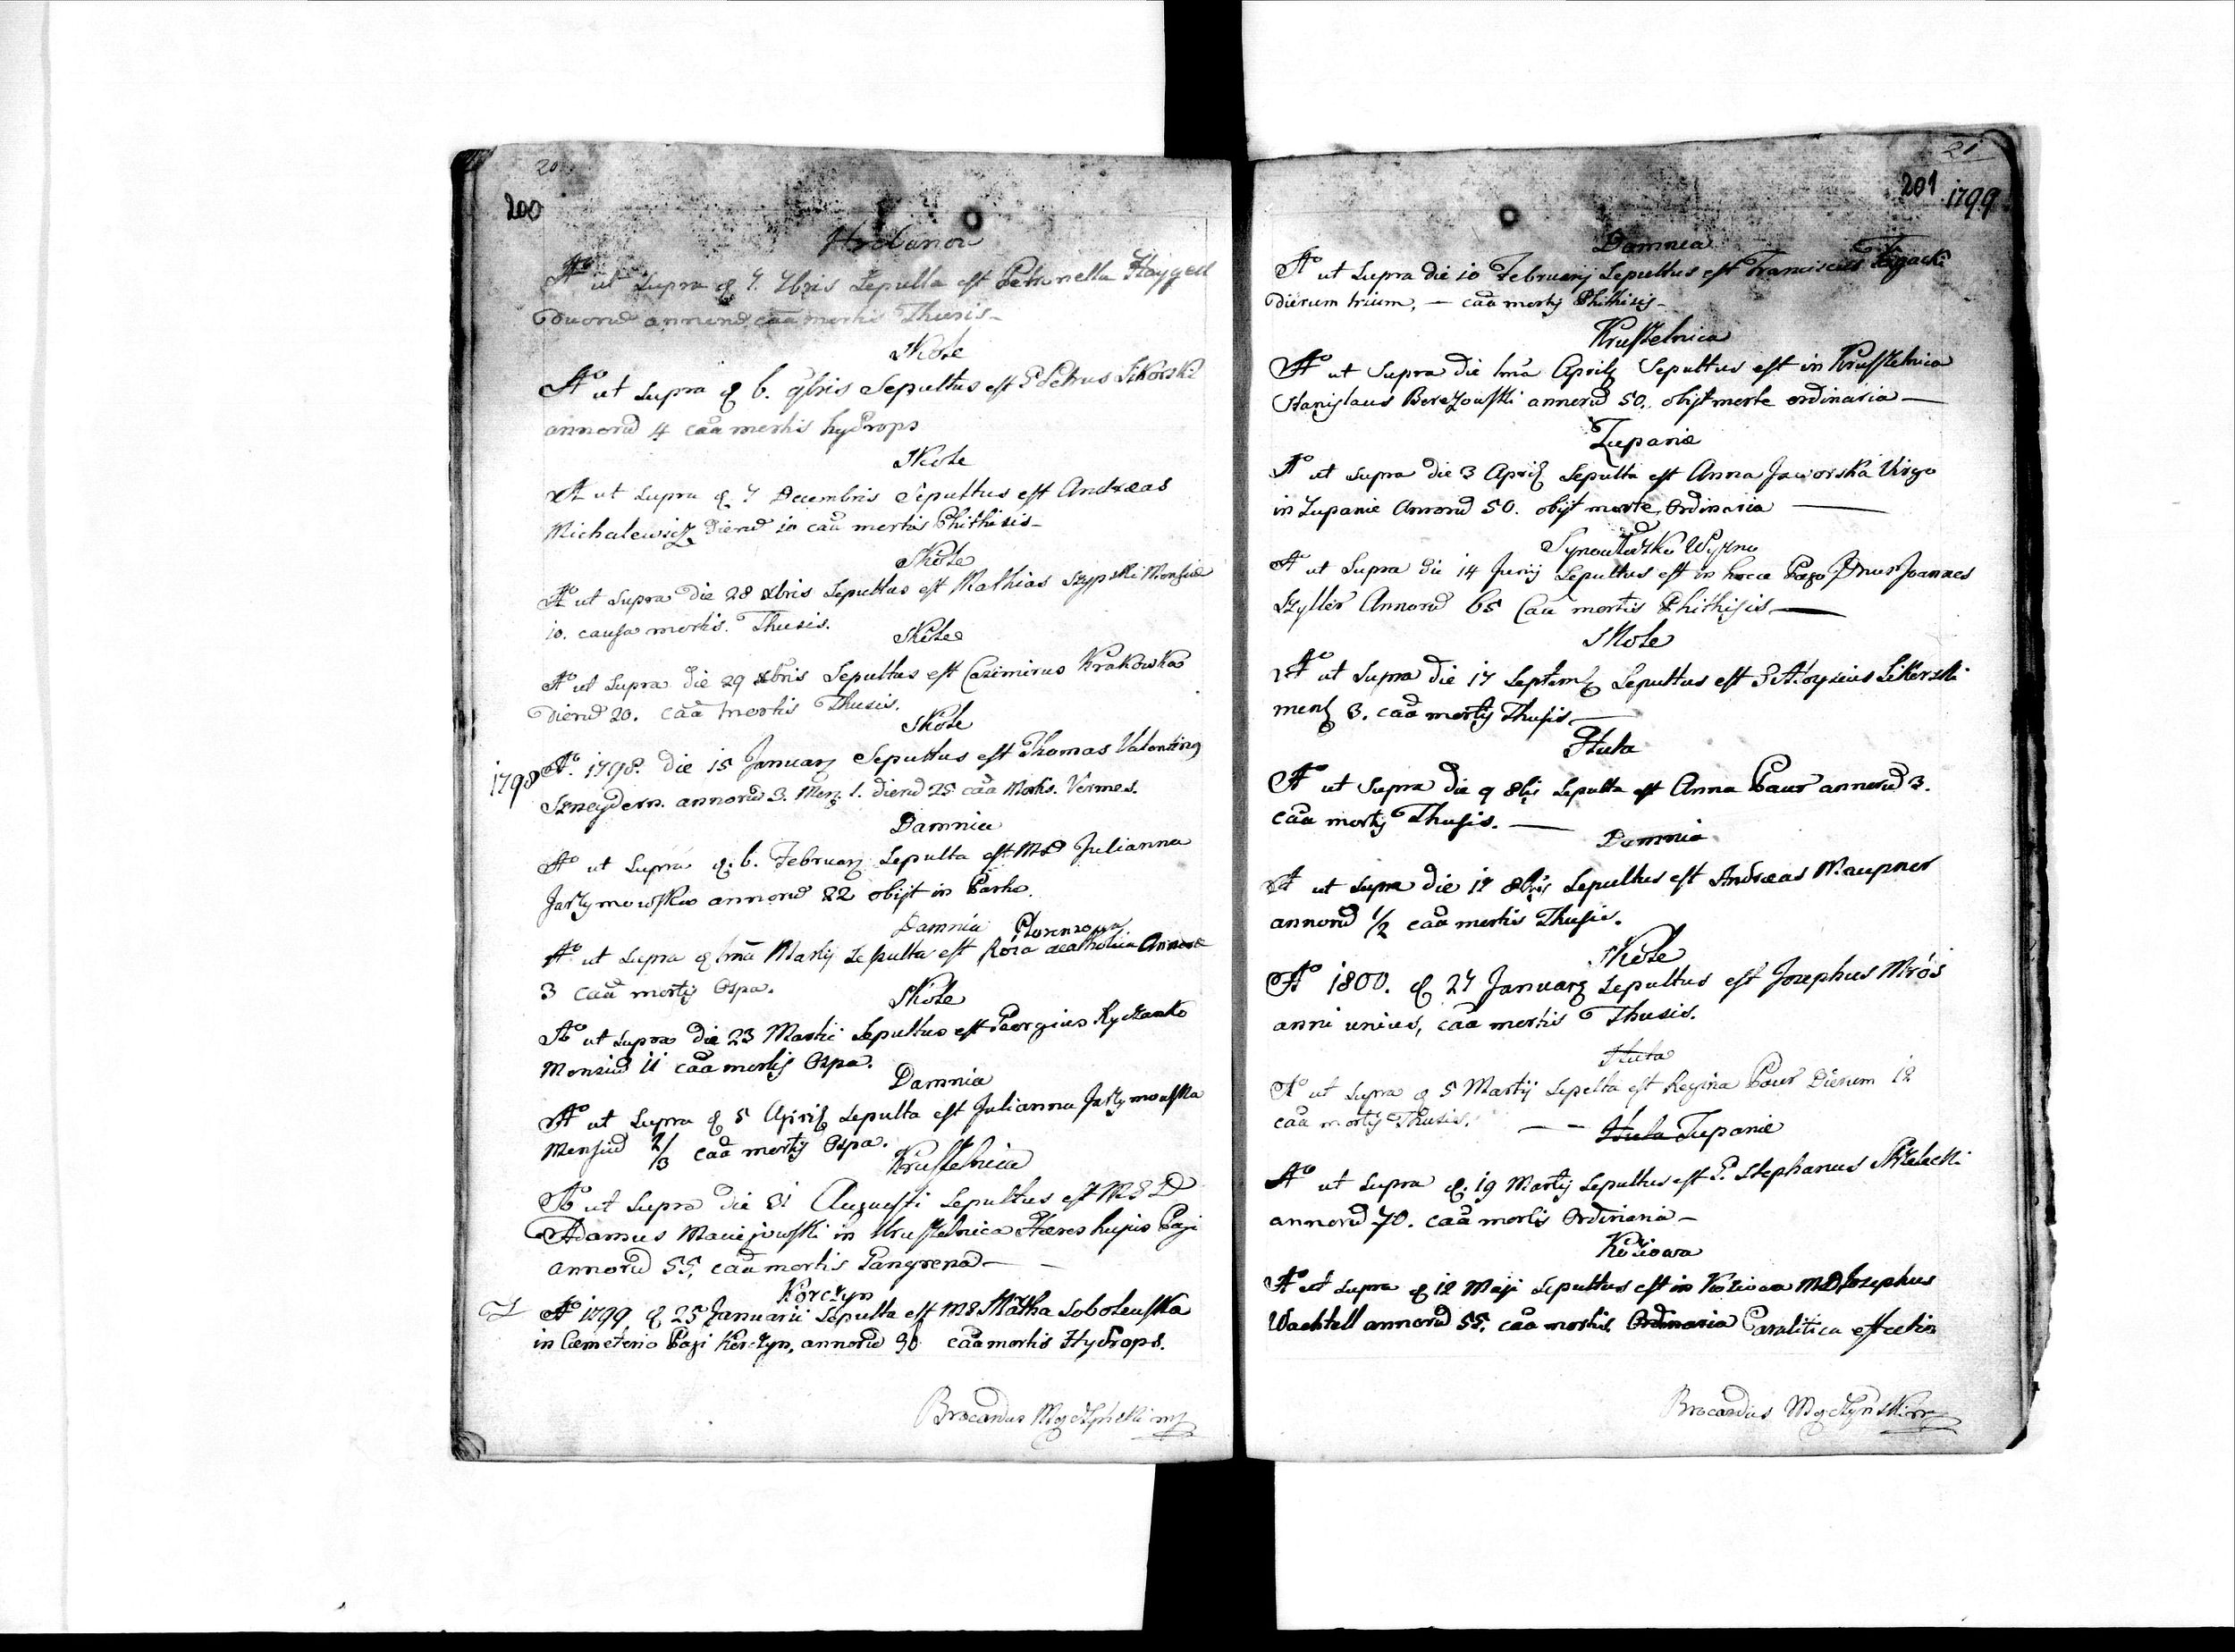 20
200
Hrebanow
Aº ut Supra d 7. 7bris Sepulta est Petronella
duorũ annorũ, caũa mortis Thusis
Skole
Aº ut Supra d 6. 9bris Sepultus est P Petrus Sikorski
annorũ 4 caũa mortis hydrops
Skole
Aº ut Supra d 7 Decembris Sepultus est Andreas
Michalewicz dierũ 10 caũa mortis Phithisis
Skole
Aº ut Supra die 28 xbris Sepultus est Mathias Szypski Mensiũ
10. causa mortis. Thusis.
Skole
Aº ut Supra die 29 xbris Sepultus est Casimirus Krakowka
dierũ 20. caũa mortis Thusis.
Skole
1798 Aº. 1798. die 15 January Sepultus est Thomas Valentiny
Szneydern. annorũ 3. Men: 1. dierũ 25 caũa Mortis. Vermes.
Damnia
Aº ut Supra d. 6. February Sepulta est MD Julianna
Jarzymowska annorũ 22 obijt in Partu.
Damnia
Aº ut Supra d 1mã Martij Sepulta est Róza acatholica Annorũ
3 caũa mortis Ospa.
Skole
Aº ut Supra die 23 Martii Sepultus est Georgius Ryczanko
Mensiũ 11 caũa mortis Ospa.
Damnia
Aº ut Supra d 5 Apriľ Sepulta est Julianna Jarzymowska
Mensiũ 2/3 caũa mortis Ospa.
Kruszelnica
Aº ut Supra die 31 Augusti Sepultus est M D
Adamus Maciejowski in Kruszelnica Hæres hujus Pagi
annorũ 55, caũa mortis Gangrena —
Korczyn
Aº 1799, d 25 Januarii Sepulta est Martha Sobolewska
in Cæmeterio Pagi Korczyn, annorũ 90 caũa mortis Hydrops.
Brocardus mp
21
201
1799
Damnia
Aº ut Supra die 10 February Sepultus est Franciscus
dierum trium, — caũa mortis Phithisis
Kruszelnica
Aº ut Supra die 1mã Apriľ Sepultus est in Kruszelnica
Stanislaus Berezowski annorũ 50, obijt morte ordinaria —
Zupanie
Aº ut Supra die 3 Apriľ Sepulta est Anna Jaworska Virgo
in Zupanie Annorũ 50. obijt morte Ordinaria —
Synowudzko Wyzne
Aº ut Supra die 14 Junij Sepultus est in hocce Pago Dnus Joannes
Szyller Annorũ 65 Caũa mortis Phithisis —
Skole
Aº ut Supra die 17 Septemb Sepultus est P Aloysius Sikorski
mens 3. caũa mortis Thusis —
Huta
Aº ut Supra die 9 8bris Sepulta est Anna Paur annorũ 3.
caũa mortis Thusis. —
Damnia
Aº ut Supra die 17 8bris Sepultus est Andreas Waupner
annorũ 1/2 caũa mortis Thusis.
Skole
Aº 1800. d 27 January Sepultus est Josephus Mrós
anni unius, caũa mortis Thusis.
Huta
Aº ut Supra d 5 Martij Sepulta est Regina Paur Dierum 12
caũa mortis Thusis. — —
Huta Zupanie
Aº ut Supra d. 19 Martij Sepultus est P. Stephanus Strzelecki
annorũ 70. caũa mortis Ordinaria —
Koziowa
Aº ut Supra d 12 Maji Sepultus est in Koziowa MD Josephus
Wachtell annorũ 55, caũa mortis Ordinaria Paralitica affectio
Brocardus mp